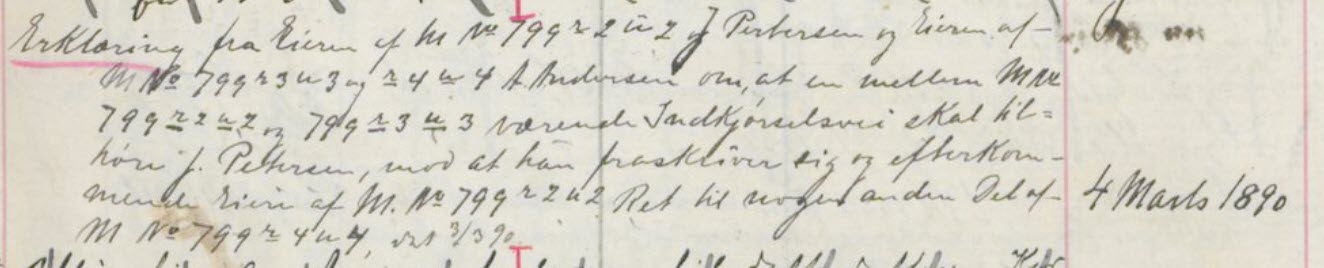 Erklæring fra Eieren af M No 799 r 2 u 2 J Petersen og Eieren af-
M No 799 r 3 u 3 og r 4 u 4 A Andersen om, at en mellem M No
799 r 2 u 2 og 799 r 3 u 3 værende Indkjørselsvei skal til=
høre J. Petersen, mod at han fraskriver sig og efterkom-
mende Eiere af M. No 799 r 2 u 2 Ret til nogen anden Del af-
M No 799 r 4 u 4, dat 3/3 90
4 Marts 1890